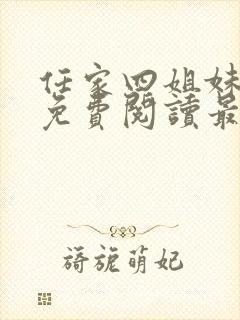 任家四姐妹
免費閱讀最
旖旎萌妃